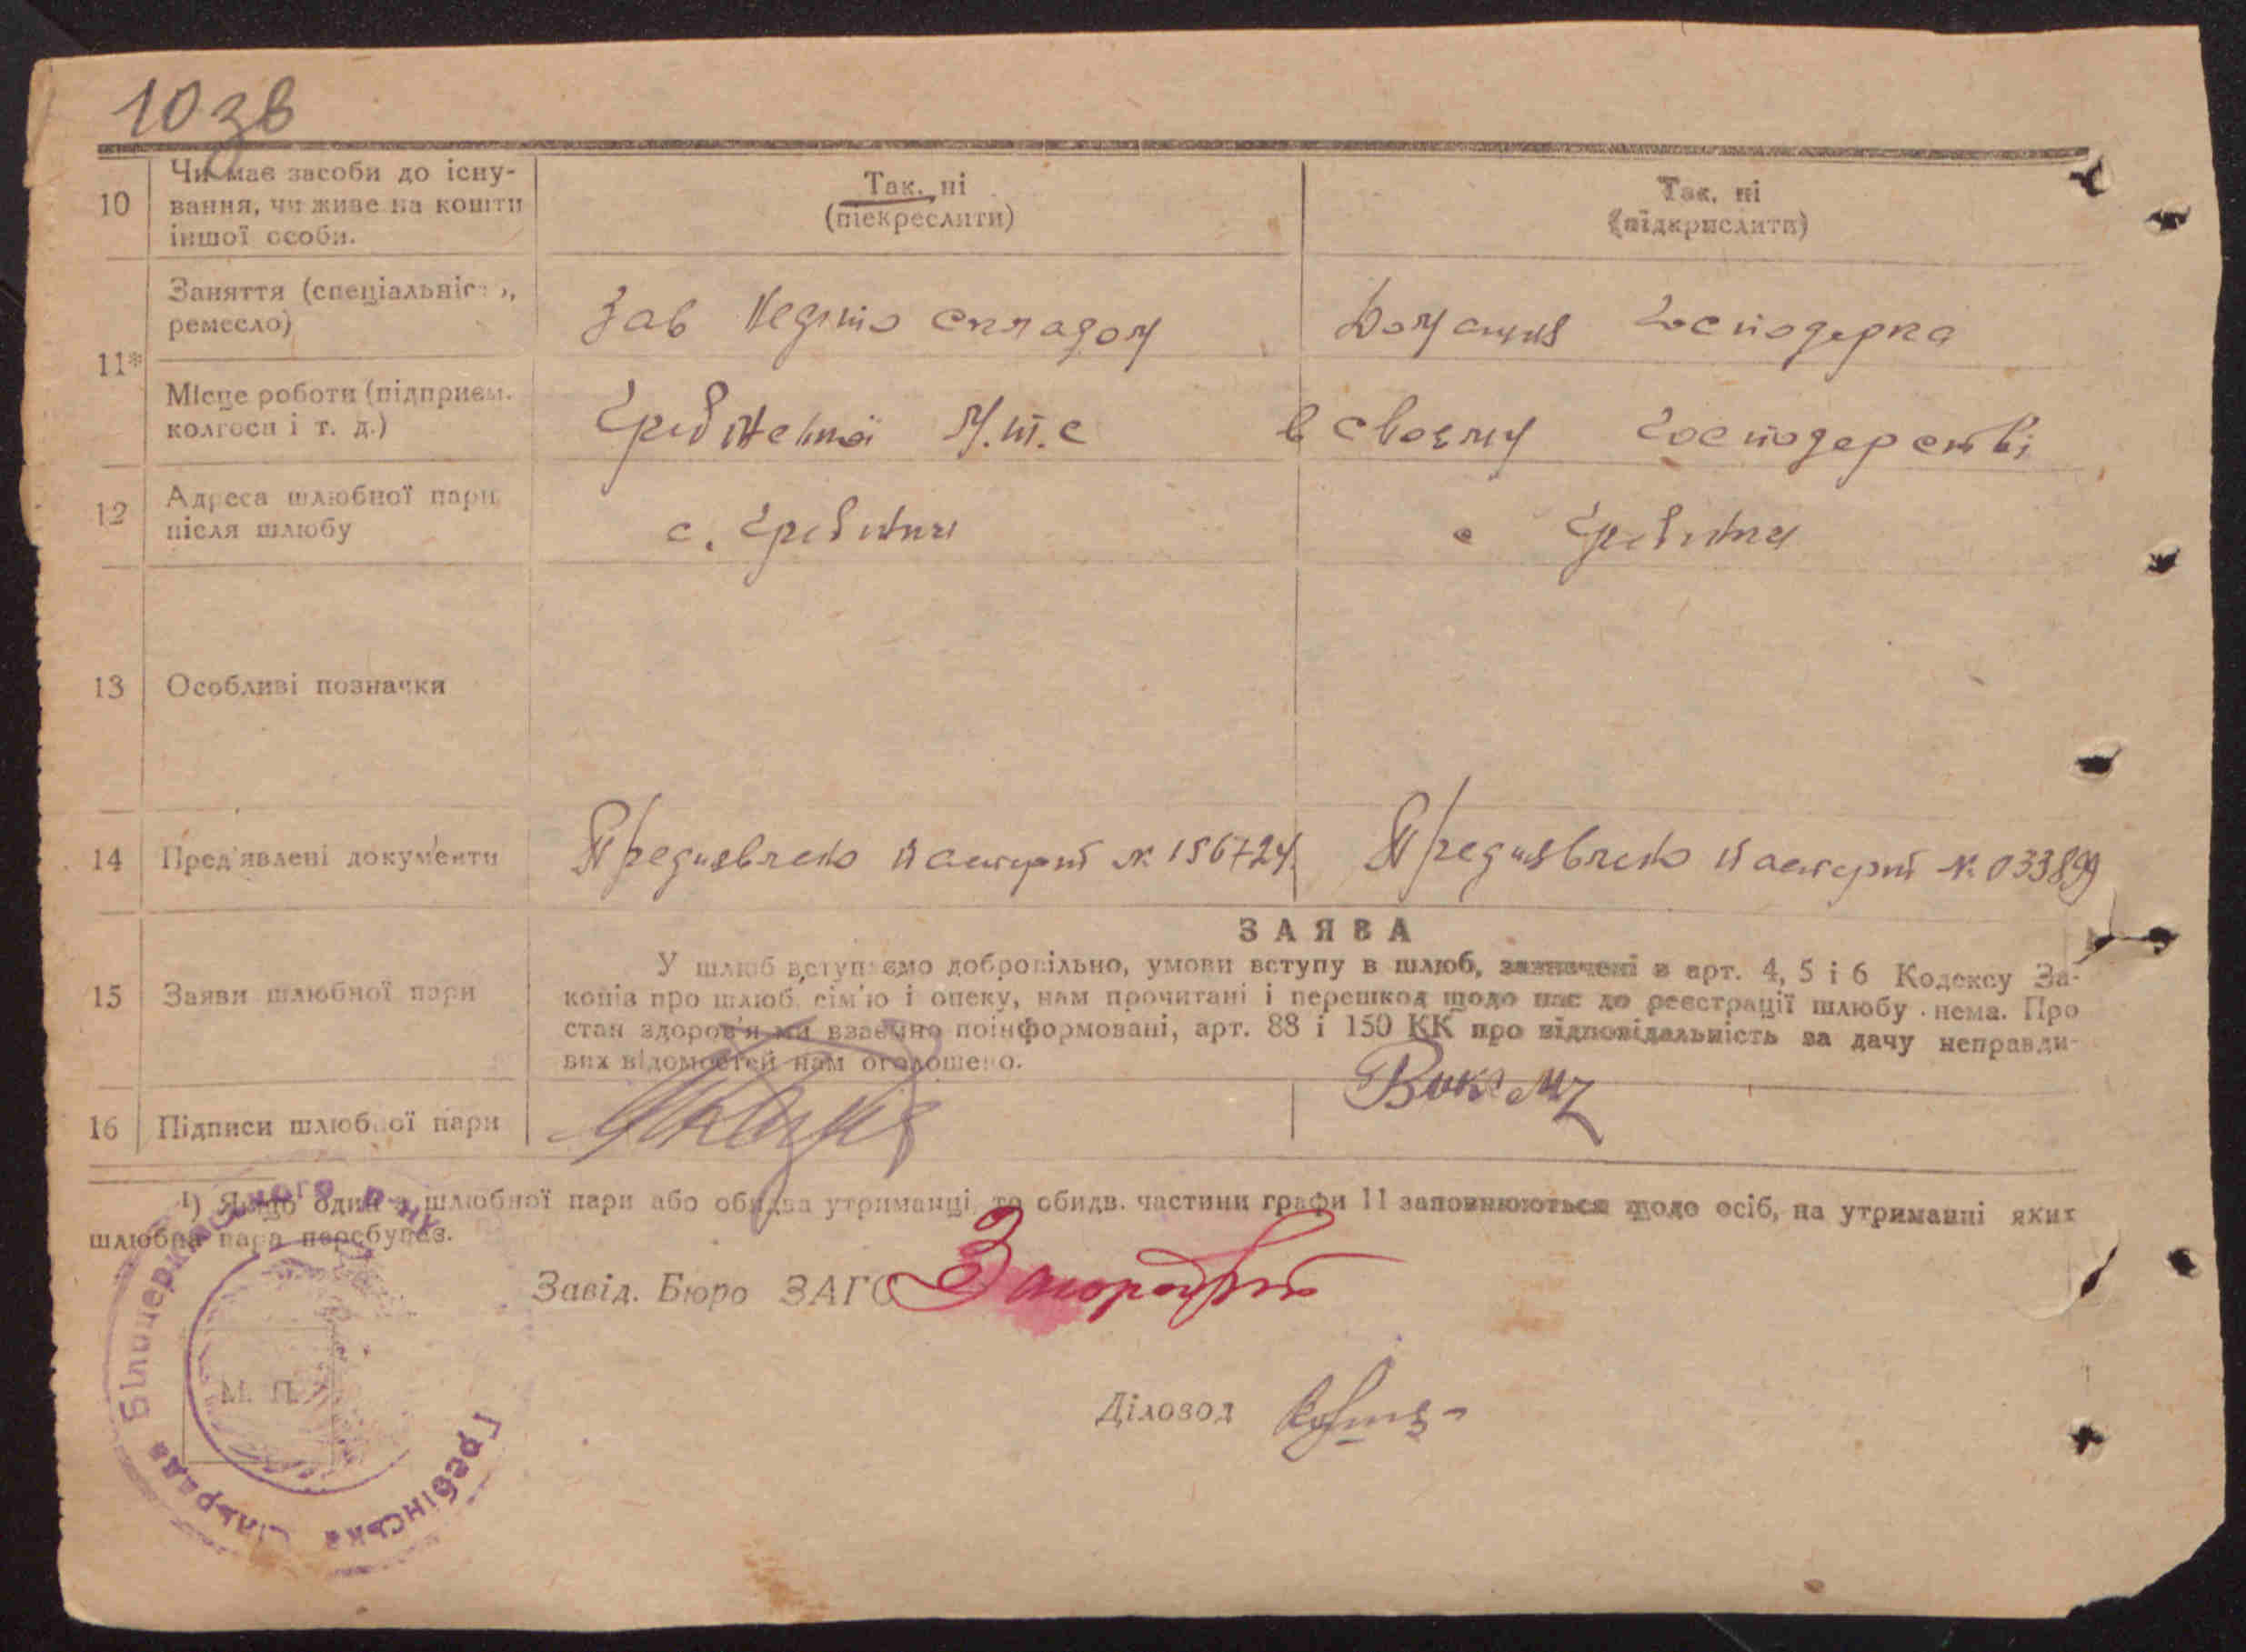 10 зв
10
Чи має засоби до існу-
вання, чи живе на кошти
іншої особи.
Так, ні
(піекреслити)
Так, ні
(підкрислити)
11*
Заняття (спеціальність,
ремесло)
Зав Недто складом
Домашня господерка
Місце роботи (підприєм.
колгосп і т. д.)
М.Т.С
в своєму господерстві
12
Адреса шлюбної пари
після шлюбу
с. Гребінки
с Гребінки
13
Особливі позначки
14
Пред'явлені документи
Предиявлено паспорт № 156724.
Предиявлено паспорт № 033899
15
Заяви шлюбної пари
ЗАЯВА
У шлюб вступаємо добровільно, умови вступу в шлюб, зазначені в арт. 4, 5 і 6 Кодексу За-
конів про шлюб, сім'ю і опеку, нам прочитані і перешкод щодо нас до реєстрації шлюбу нема. Про
стан здоров'я ми взаємно поінформовані, арт. 88 і 150 КК про відповідальність за дачу неправди-
вих відомостей нам оголошено.
16
Підписи шлюбної пари
1) Якщо один з шлюбної пари або обидва утриманці, то обидв. частини графи 11 заповнюються щодо осіб, на утриманні яких
шлюбна пара перебуває.
Завід. Бюро ЗАГС
М. П.
Діловод
Гребінська сільрада Білоцерківського р-ну